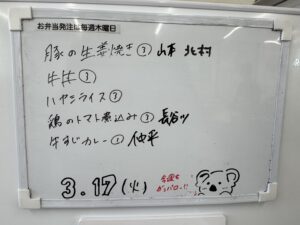 お弁当発注は毎週木曜日
豚の生姜焼き③ 山本 北村
牛丼③
ハヤシライス②
鶏のトマト煮込み③ 長谷川
牛すじカレー① 仲平
3.17(火)
今週も
ガンバロー!!